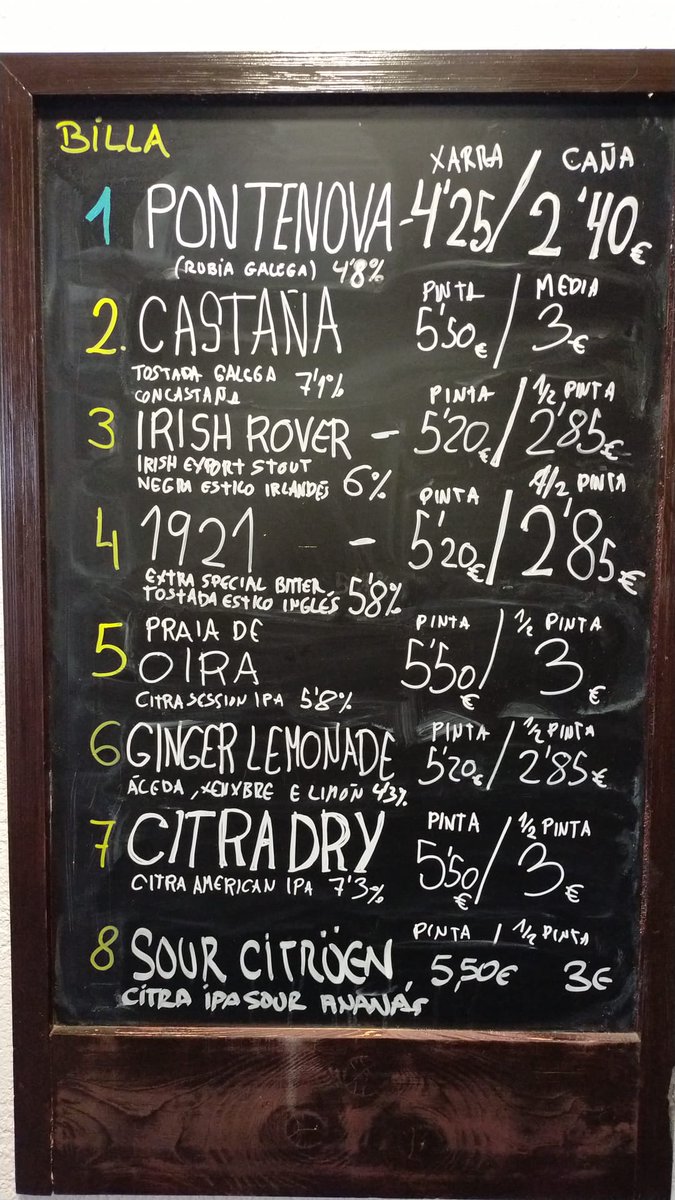 BILLA
XARRA / CAÑA
1 PONTENOVA - 4'25 / 2'40€
(RUBIA GALEGA) 4'8%
PINTA / MEDIA
2. CASTAÑA 5'50€ / 3€
TOSTADA GALEGA 7'1%
CONCASTAÑA
PINTA / 1/2 PINTA
3 IRISH ROVER - 5'20€ / 2'85€
IRISH EXPORT STOUT
NEGRA ESTILO IRLANDÉS 6%
PINTA / 1/2 PINTA
4 1921 - 5'20€ / 2'85€
EXTRA SPECIAL BITTER
TOSTADA ESTILO INGLÉS 5'8%
PINTA / 1/2 PINTA
5 PRAIA DE
OIRA 5'50€ / 3€
CITRA SESSION IPA 5'8%
PINTA / 1/2 PINTA
6 GINGER LEMONADE 5'20€ / 2'85€
ÁCEDA, XENXIBRE E LIMÓN 4'3%
PINTA / 1/2 PINTA
7 CITRA DRY 5'50€ / 3€
CITRA AMERICAN IPA 7'3%
PINTA / 1/2 PINTA
8 SOUR CITRÖEN, 5,50€ 3€
CITRA IPA SOUR ANANÁS